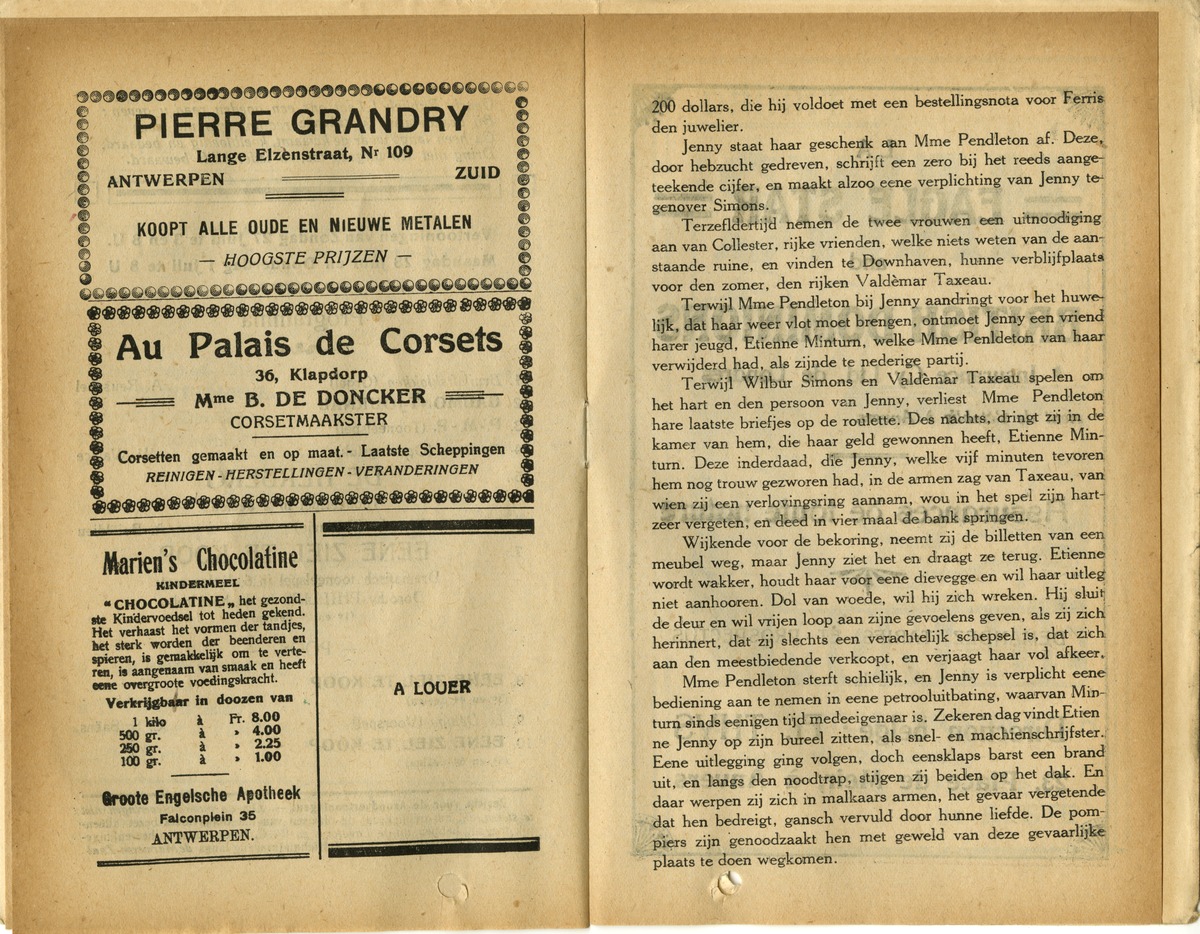 PIERRE GRANDRY
Lange Elzenstraat, Nr 109
ANTWERPEN ZUID
KOOPT ALLE OUDE EN NIEUWE METALEN
— HOOGSTE PRIJZEN —
Au Palais de Corsets
36, Klapdorp
Mme B. DE DONCKER
CORSETMAAKSTER
Corsetten gemaakt en op maat. - Laatste Scheppingen
REINIGEN - HERSTELLINGEN - VERANDERINGEN
Marien's Chocolatine
KINDERMEEL
"CHOCOLATINE„ het gezond-
ste Kindervoedsel tot heden gekend.
Het verhaast het vormen der tandjes,
het sterk worden der beenderen en
spieren, is gemakkelijk om te verte-
ren, is aangenaam van smaak en heeft
eene overgroote voedingskracht.
Verkrijgbaar in doozen van
1 kilo à Fr. 8.00
500 gr. à » 4.00
250 gr. à » 2.25
100 gr. à » 1.00
Groote Engelsche Apotheek
Falconplein 35
ANTWERPEN.
A LOUER
200 dollars, die hij voldoet met een bestellingsnota voor Ferris
den juwelier.
Jenny staat haar geschenk aan Mme Pendleton af. Deze,
door hebzucht gedreven, schrijft een zero bij het reeds aange-
teekende cijfer, en maakt alzoo eene verplichting van Jenny te-
genover Simons.
Terzefldertijd nemen de twee vrouwen een uitnoodiging
aan van Collester, rijke vrienden, welke niets weten van de aan-
staande ruine, en vinden te Downhaven, hunne verblijfplaats
voor den zomer, den rijken Valdèmar Taxeau.
Terwijl Mme Pendleton bij Jenny aandringt voor het huwe-
lijk, dat haar weer vlot moet brengen, ontmoet Jenny een vriend
harer jeugd, Etienne Minturn, welke Mme Penldeton van haar
verwijderd had, als zijnde te nederige partij.
Terwijl Wilbur Simons en Valdèmar Taxeau spelen om
het hart en den persoon van Jenny, verliest Mme Pendleton
hare laatste briefjes op de roulette. Des nachts, dringt zij in de
kamer van hem, die haar geld gewonnen heeft, Etienne Min-
turn. Deze inderdaad, die Jenny, welke vijf minuten tevoren
hem nog trouw gezworen had, in de armen zag van Taxeau, van
wien zij een verlovingsring aannam, wou in het spel zijn hart-
zeer vergeten, en deed in vier maal de bank springen.
Wijkende voor de bekoring, neemt zij de billetten van een
meubel weg, maar Jenny ziet het en draagt ze terug. Etienne
wordt wakker, houdt haar voor eene dievegge en wil haar uitleg
niet aanhooren. Dol van woede, wil hij zich wreken. Hij sluit
de deur en wil vrijen loop aan zijne gevoelens geven, als zij zich
herinnert, dat zij slechts een verachtelijk schepsel is, dat zich
aan den meestbiedende verkoopt, en verjaagt haar vol afkeer.
Mme Pendleton sterft schielijk, en Jenny is verplicht eene
bediening aan te nemen in eene petrooluitbating, waarvan Min-
turn sinds eenigen tijd medeeigenaar is. Zekeren dag vindt Etien
ne Jenny op zijn bureel zitten, als snel- en machienschrijfster.
Eene uitlegging ging volgen, doch eensklaps barst een brand
uit, en langs den noodtrap, stijgen zij beiden op het dak. En
daar werpen zij zich in malkaars armen, het gevaar vergetende
dat hen bedreigt, gansch vervuld door hunne liefde. De pom-
piers zijn genoodzaakt hen met geweld van deze gevaarlijke
plaats te doen wegkomen.